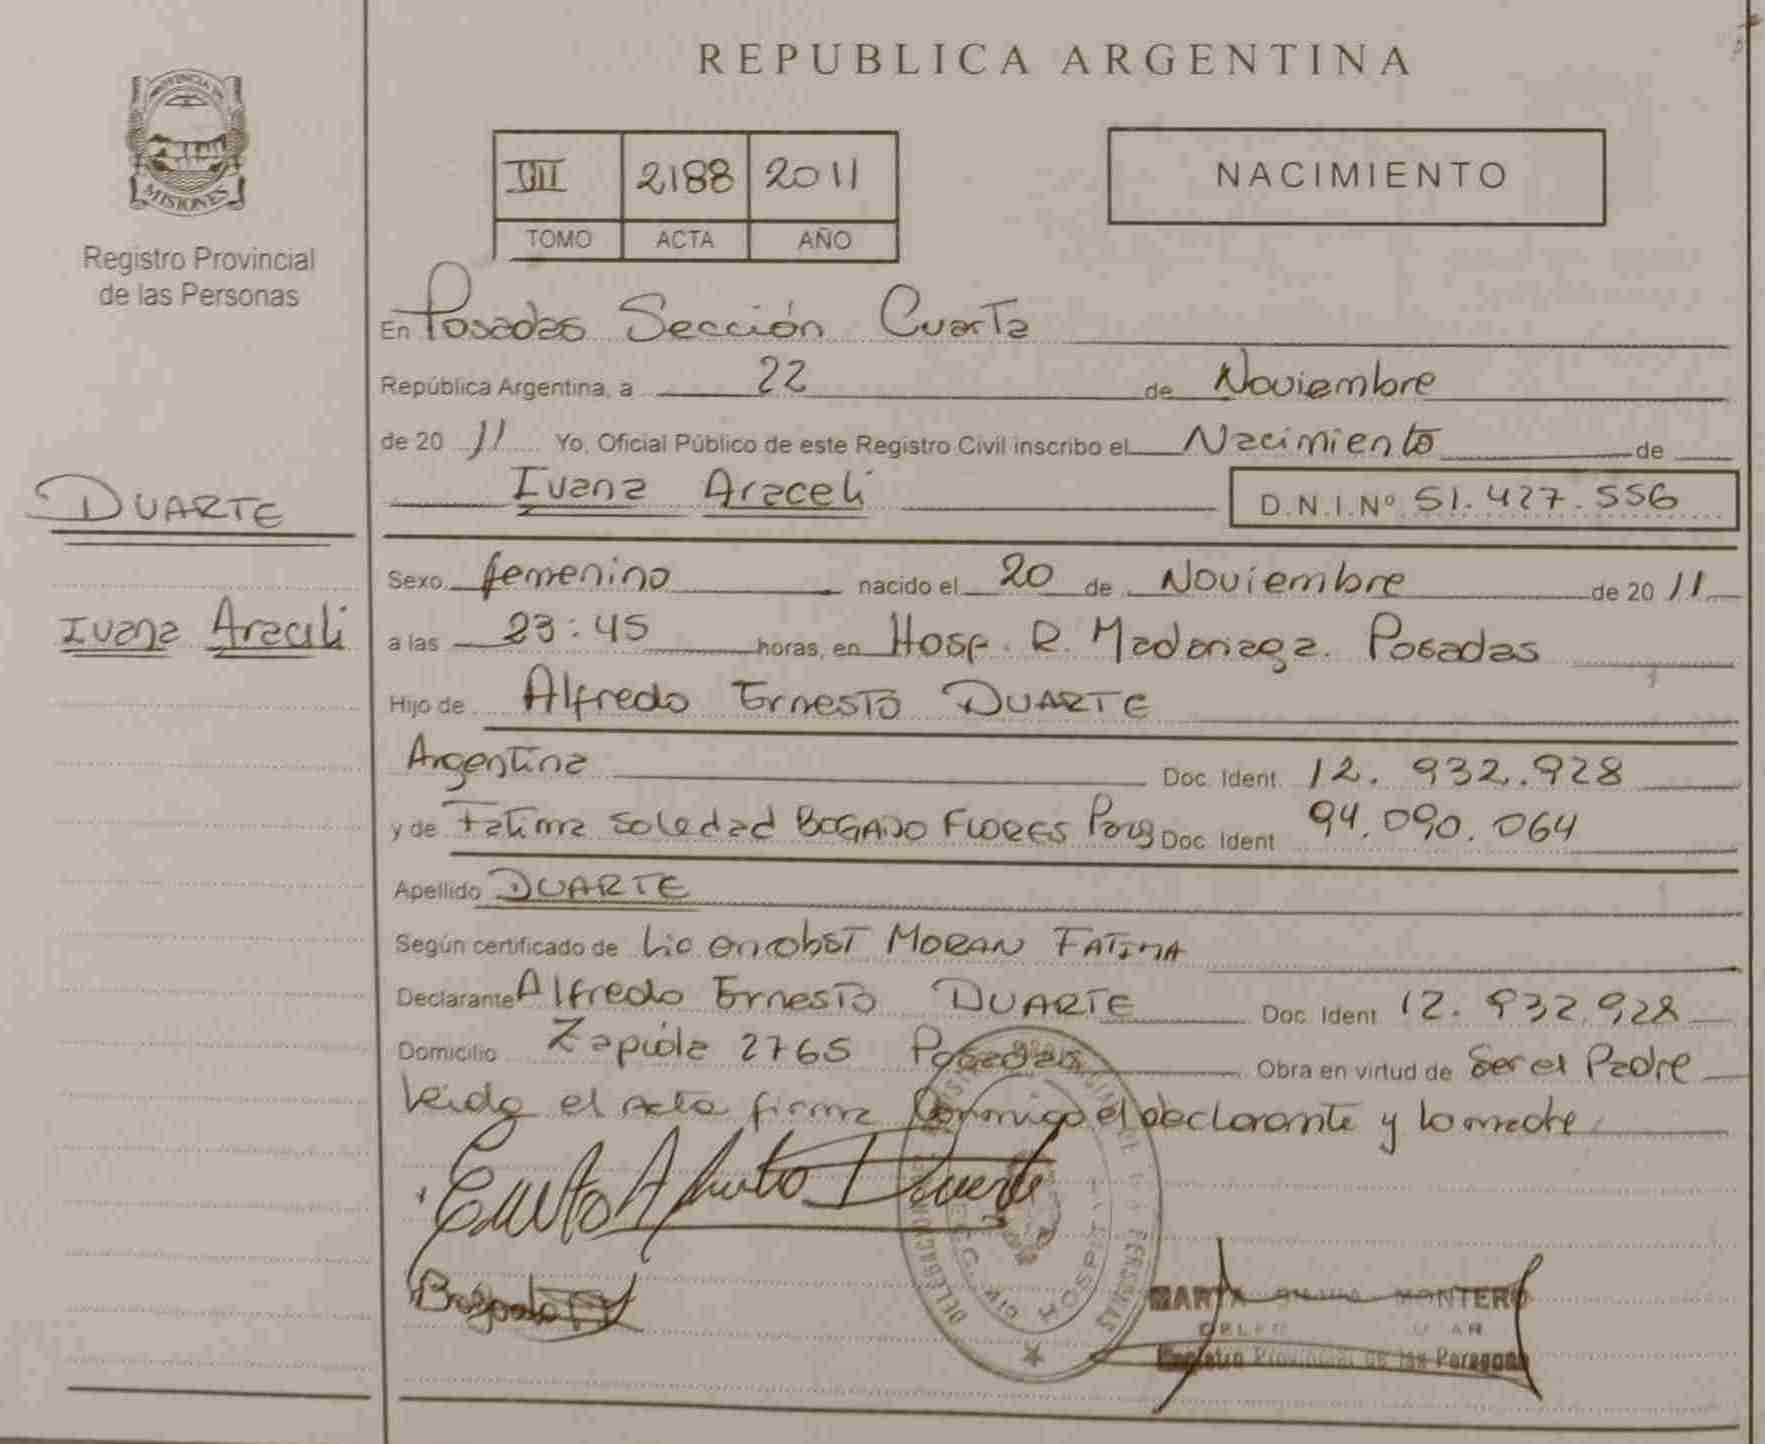 REPUBLICA ARGENTINA
PROVINCIA DE
MISIONES
Registro Provincial
de las Personas
III 2188 2011
TOMO ACTA AÑO
NACIMIENTO
En Posadas Sección Cuarta
República Argentina, a 22 de Noviembre
de 20 11 Yo, Oficial Público de este Registro Civil inscribo el Nacimiento de
Ivana Araceli D.N.I.Nº 51.427.556
DUARTE
Ivana Araceli
Sexo femenino nacido el 20 de Noviembre de 20 11
a las 23:45 horas, en Hosp. R. Madariaga. Posadas
Hijo de Alfredo Ernesto DUARTE
Argentina Doc. Ident. 12.932.928
y de Fatima Soledad BOGADO FLORES Doc. Ident 94.090.064
Apellido DUARTE
Según certificado de Lic en obst MORAN FATIMA
Declarante Alfredo Ernesto DUARTE Doc. Ident. 12.932.928
Domicilio Zapiola 2765 Posadas Obra en virtud de Ser el Padre
leida el acta firma Conmigo el declarante y la madre
Duarte
Bogado
HOSPIT
MONTERO
Registro Provincial de las Personas